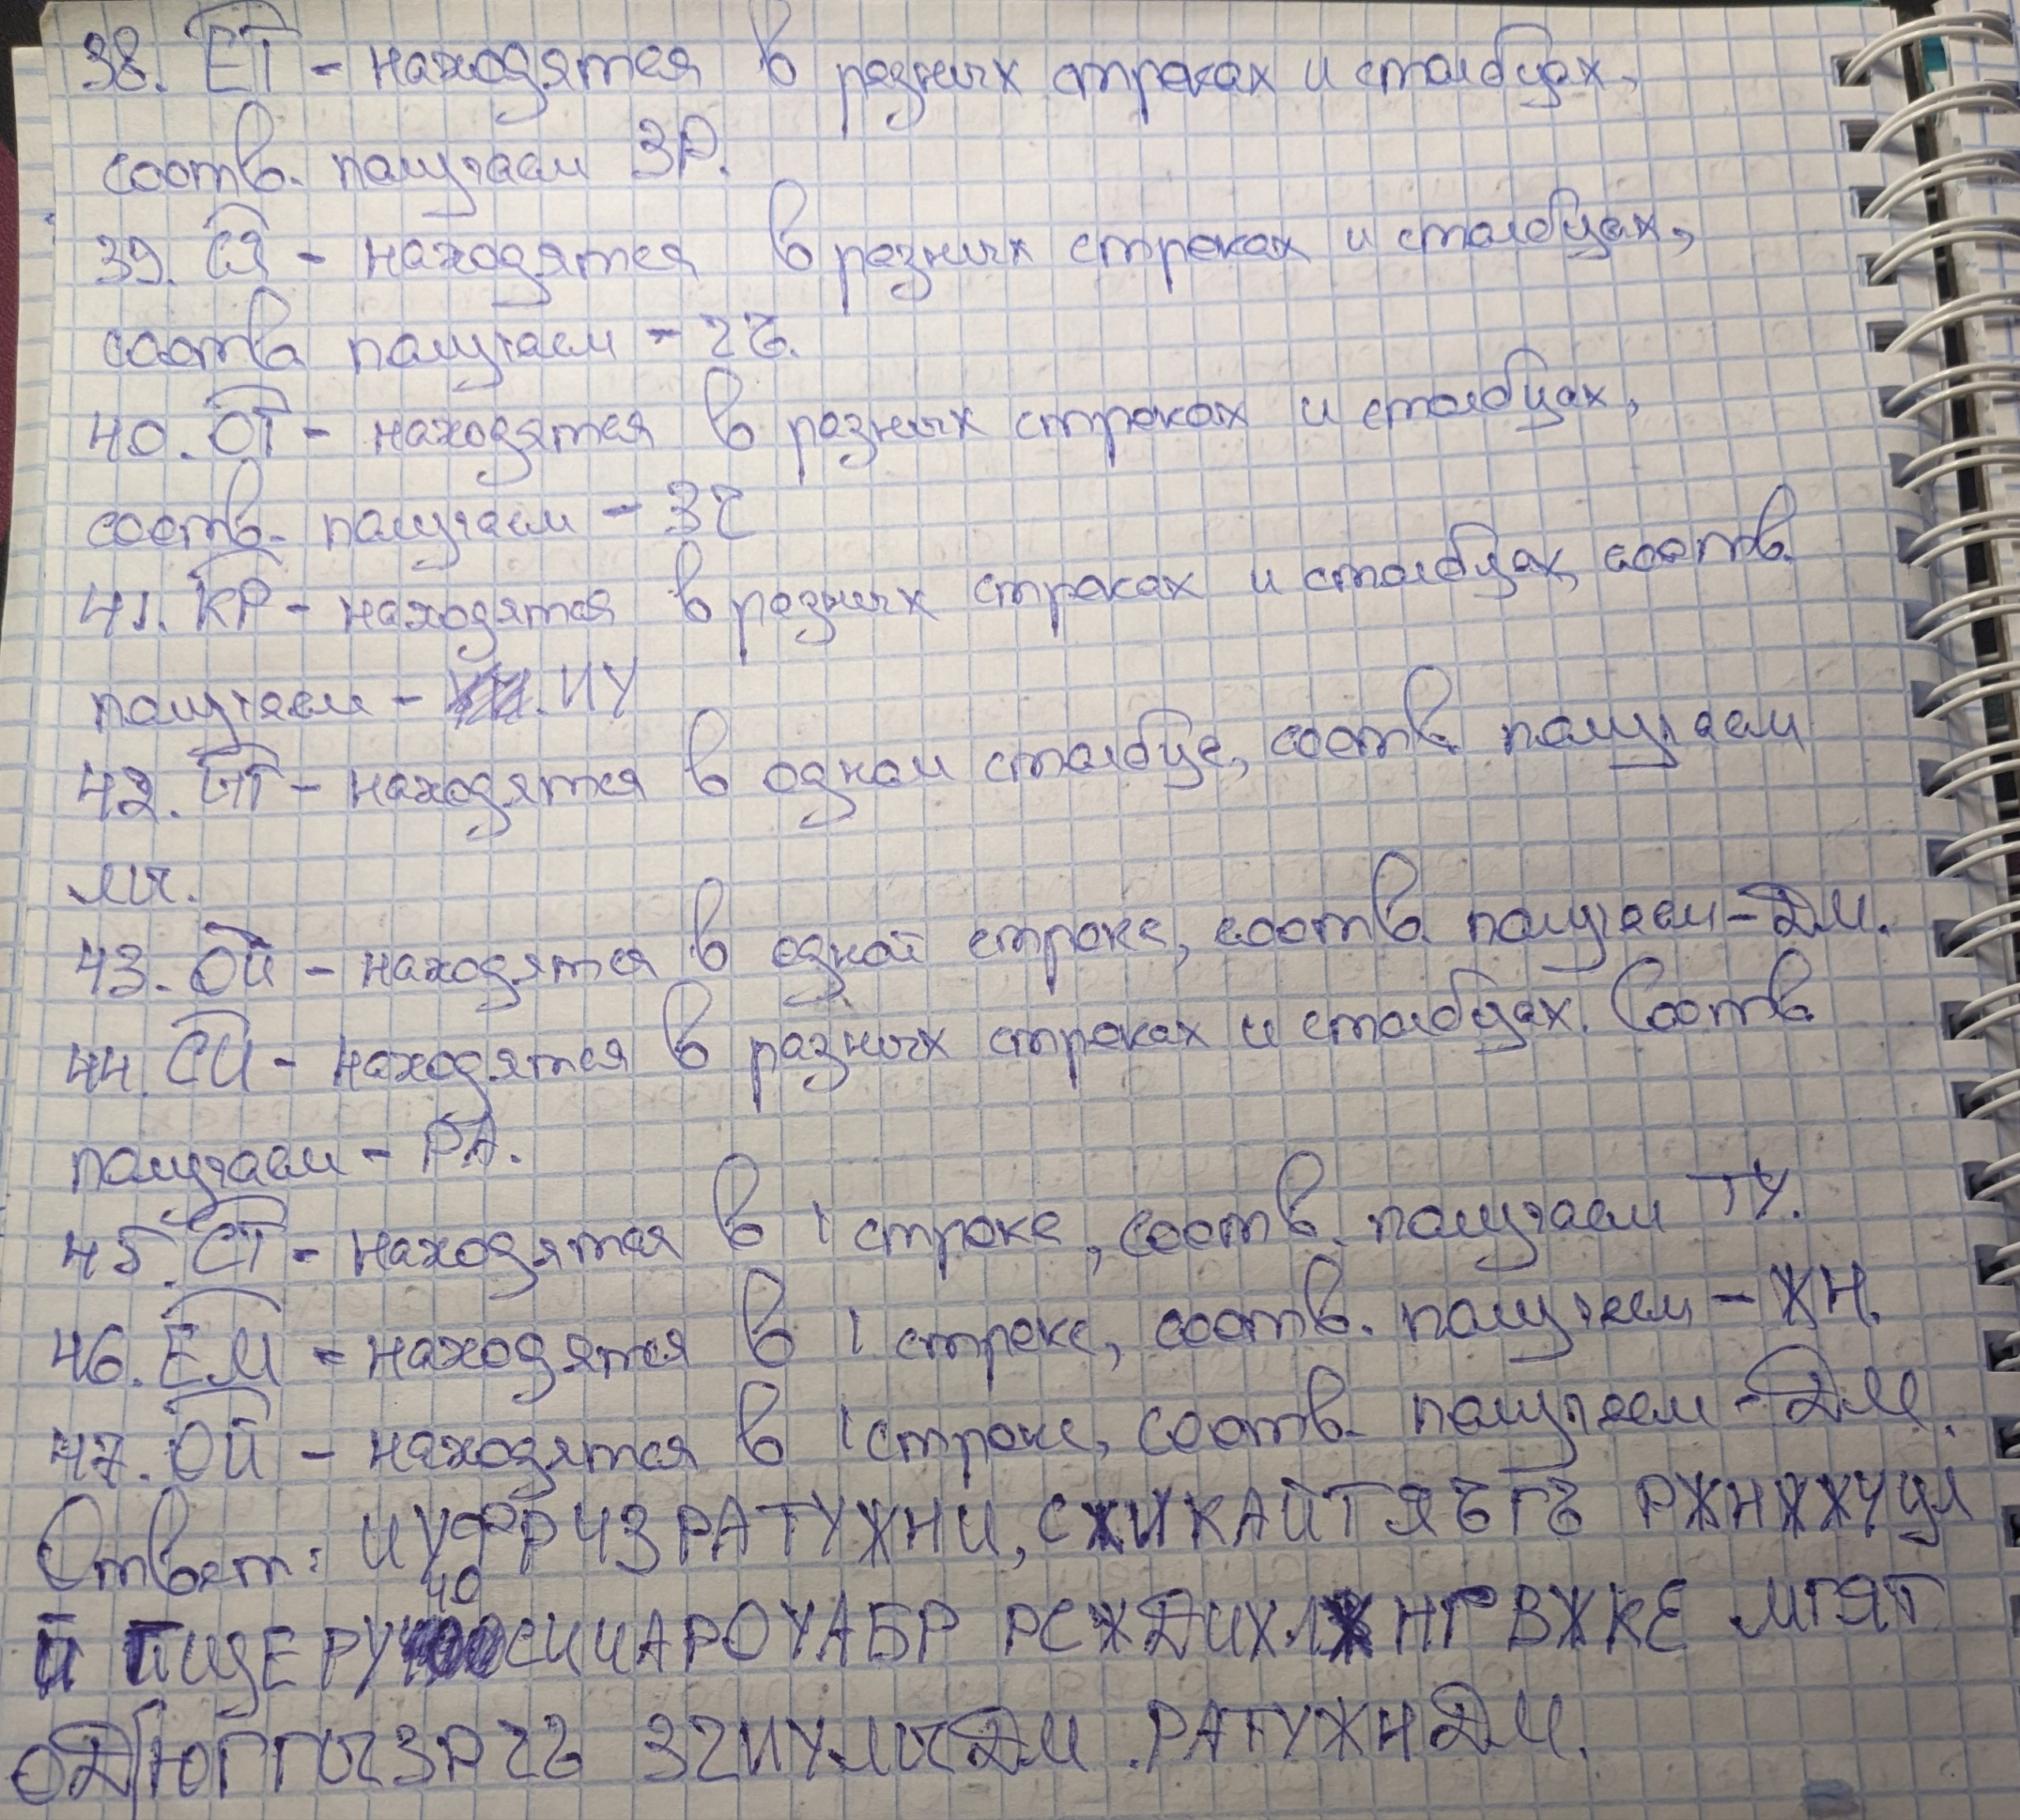 38. ЕТ - находятся в разных строках и столбцах,
соотв. получаем ЗР.
39. СЯ - находятся в разных строках и столбцах,
соотв получаем - ЧЪ.
40. ОТ - находятся в разных строках и столбцах,
соотв. получаем - ЗЧ
41. КР - находятся в разных строках и столбцах, соотв.
получаем - ИУ
42. - находятся в одном столбце, соотв. получаем
43. ОЙ - находятся в одной строке, соотв. получаем - ДМ.
44. СИ - находятся в разных строках и столбцах. Соотв.
получаем - РА.
45. СТ - находятся в 1 строке, соотв. получаем ТУ.
46. ЕМ - находятся в 1 строке, соотв. получаем - ЖН.
47. ОЙ - находятся в 1 строке, соотв. получаем - ДМ.
Ответ: ИУФРЧЗРАТУЖНИ, СЖИКАЙТЯЪГЪ